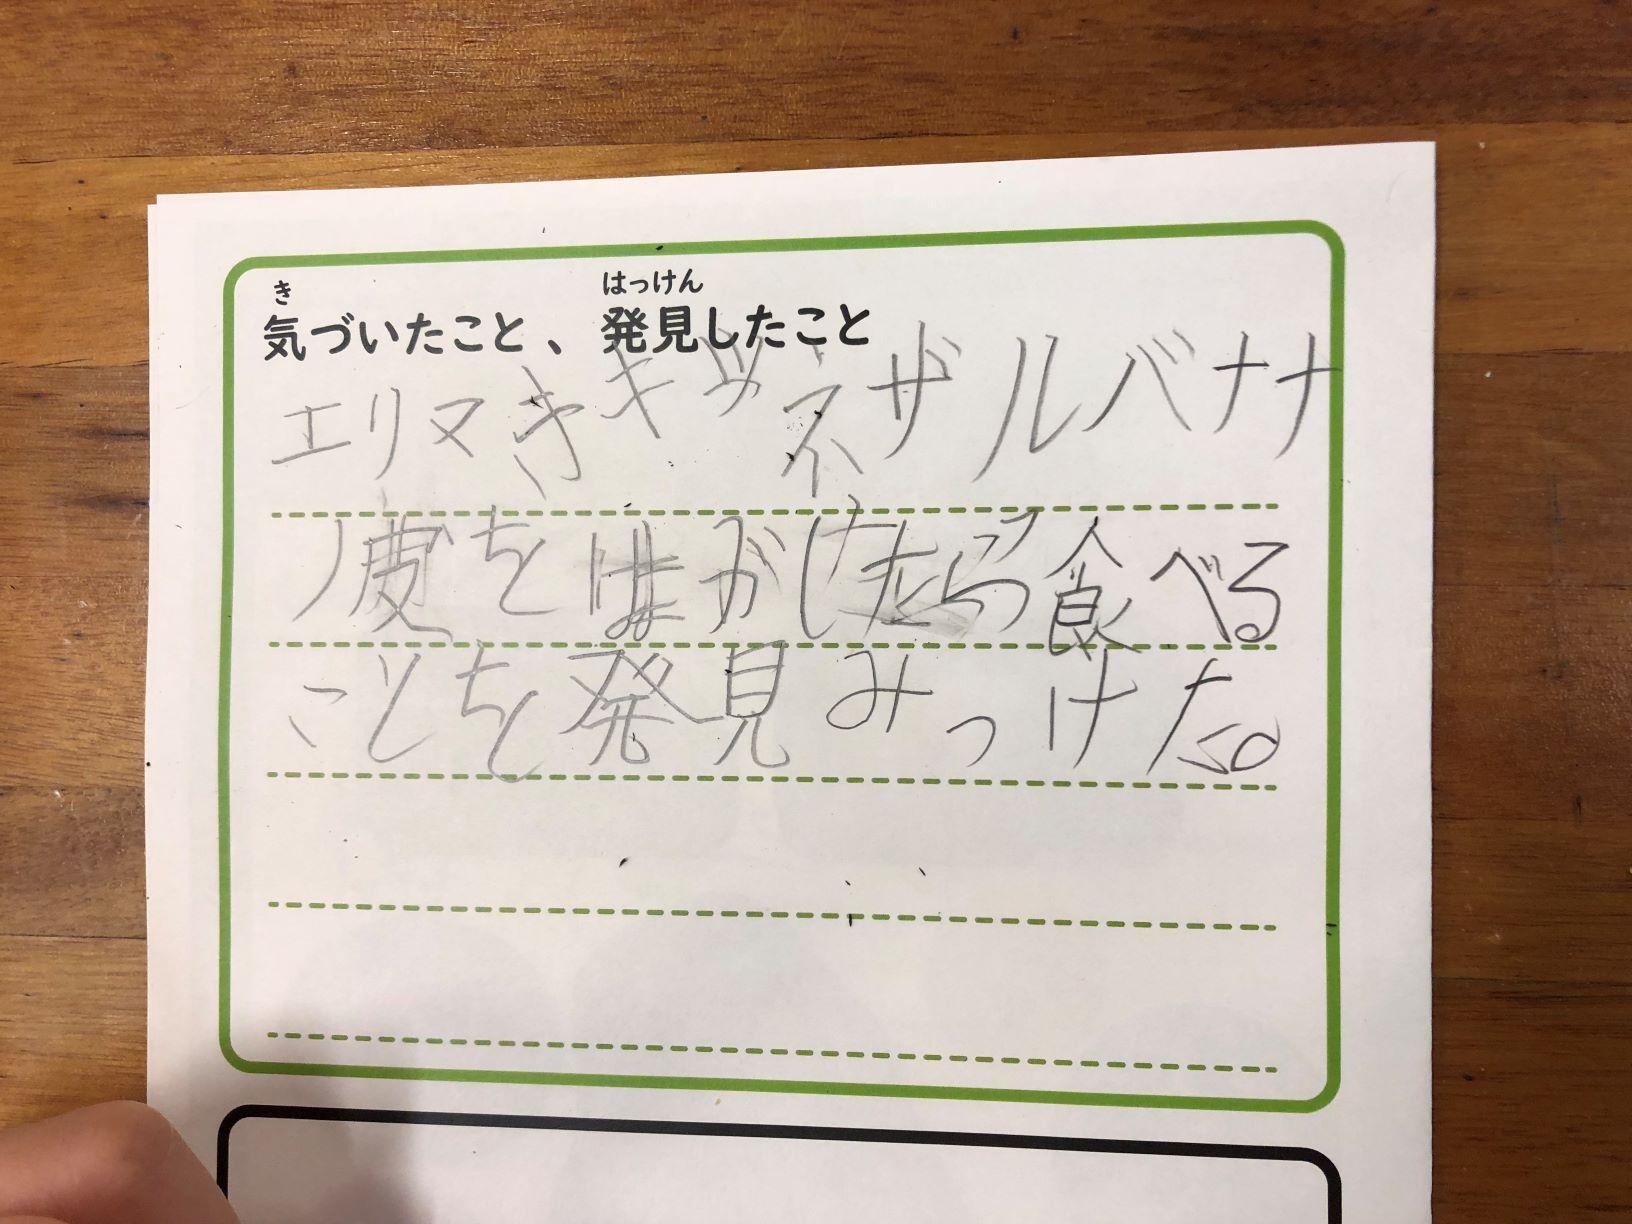 き はっけん
気づいたこと、発見したこと
エリマきキツネザルバナナ
ノ皮をはがしたら食べる
ことを発見みつけた。